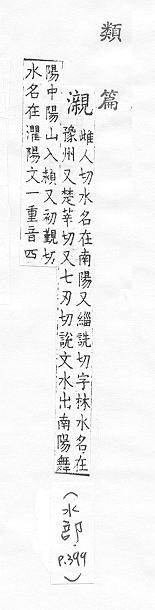 類篇
瀙
雌人切水名在南陽又緇詵切字林水名在
豫州又楚莘切又七刃切說文水出南陽舞
陽中陽山入潁又初覲切
水名在灈陽文一重音四
(水部. P.399)